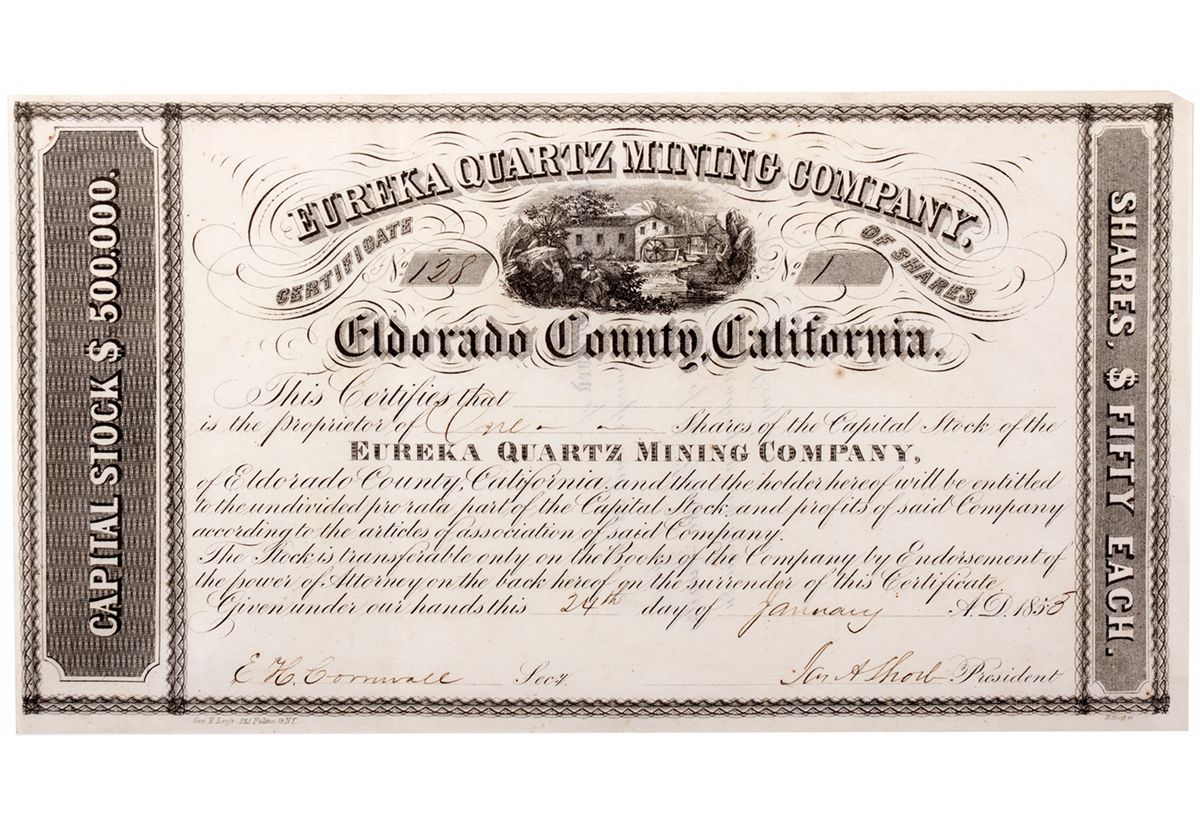 CAPITAL STOCK $ 500.000.
EUREKA QUARTZ MINING COMPANY.
CERTIFICATE OF SHARES
No. 128 No. 1
Eldorado County, California.
This Certifies that
is the proprietor of One Shares of the Capital Stock of the
EUREKA QUARTZ MINING COMPANY,
of Eldorado County, California, and that the holder hereof will be entitled
to the undivided prorata part of the Capital Stock, and profits of said Company
according to the articles of association of said Company.
The Stock is transferable only on the Books of the Company by Endorsement of
the power of Attorney on the back hereof on the surrender of this Certificate
Given under our hands this 24th day of January A.D. 1855
E H Cornwall Secy. Jas A Shorb President
225 Fulton St NY.
SHARES, $ FIFTY EACH.